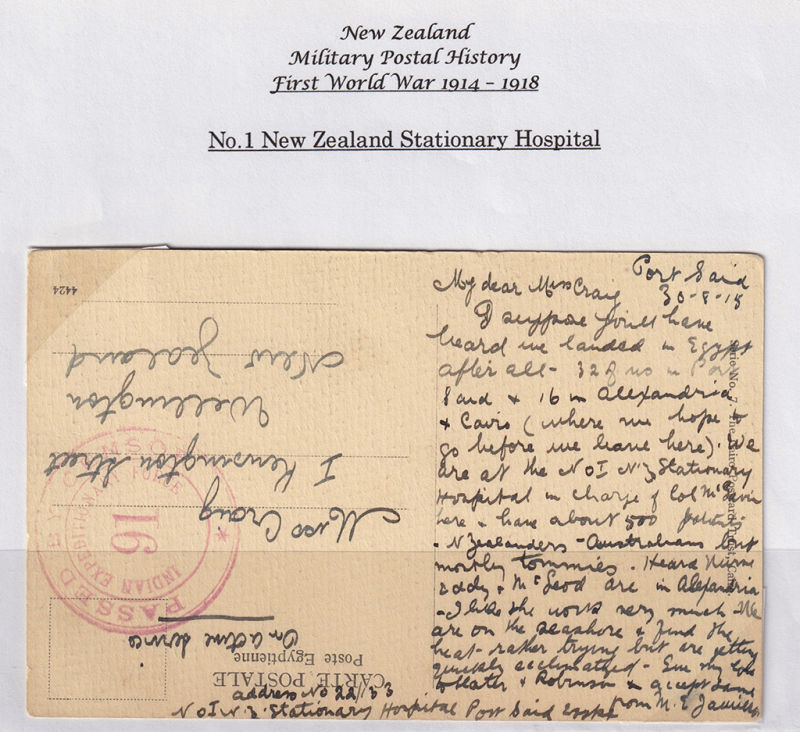 New Zealand
Military Postal History
First World War 1914 – 1918
No.1 New Zealand Stationary Hospital
Port Said
30-8-15
My dear Miss Craig
I suppose you'll have
heard we landed in Egypt
after all - 32 of us in Port
Said & 16 in Alexandria
& Cairo (where we hope to
go before we leave here). We
are at the No I N.Z Stationary
Hospital in charge of Col McGavin
here & have about 500 patients
- N Zealanders - Australians but
mostly Tommies. Heard Nurse
Eddy & McLeod are in Alexandria
- I like the work very much. We
are on the seashore & find the
heat rather trying but are getting
quickly acclimatized - Give my love
to Slater & Robinson & accept same
from M. E.
address No 22/133
No I N.Z. Stationary Hospital Port Said Egypt
CARTE POSTALE
Poste Egyptienne
On active service
Miss Craig
1 Kensington Street
Wellington
New Zealand
4424
PASSED BY CENSOR
INDIAN EXPEDITIONARY FORCE
16
Serie No. 7. The Cairo Postcard Trust, Cairo